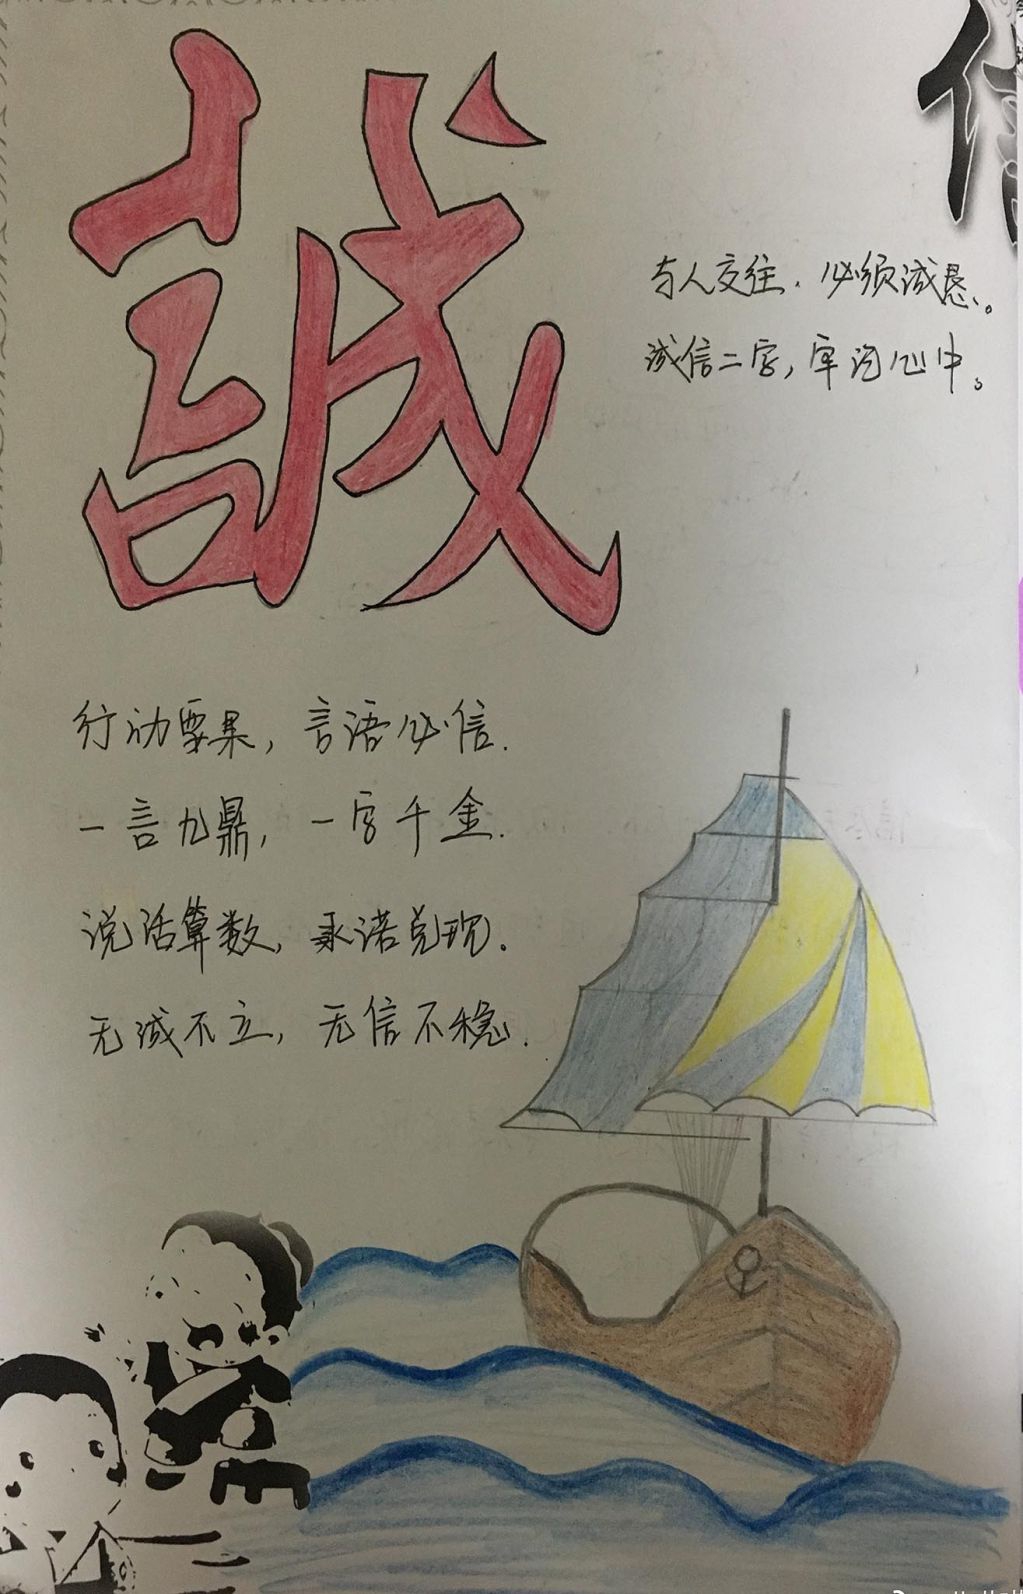 誠
信
与人交往，必须诚恳。
诚信二字，牢记心中。
行动要果，言语必信.
一言九鼎，一字千金.
说话算数，承诺兑现.
无诚不立，无信不稳.